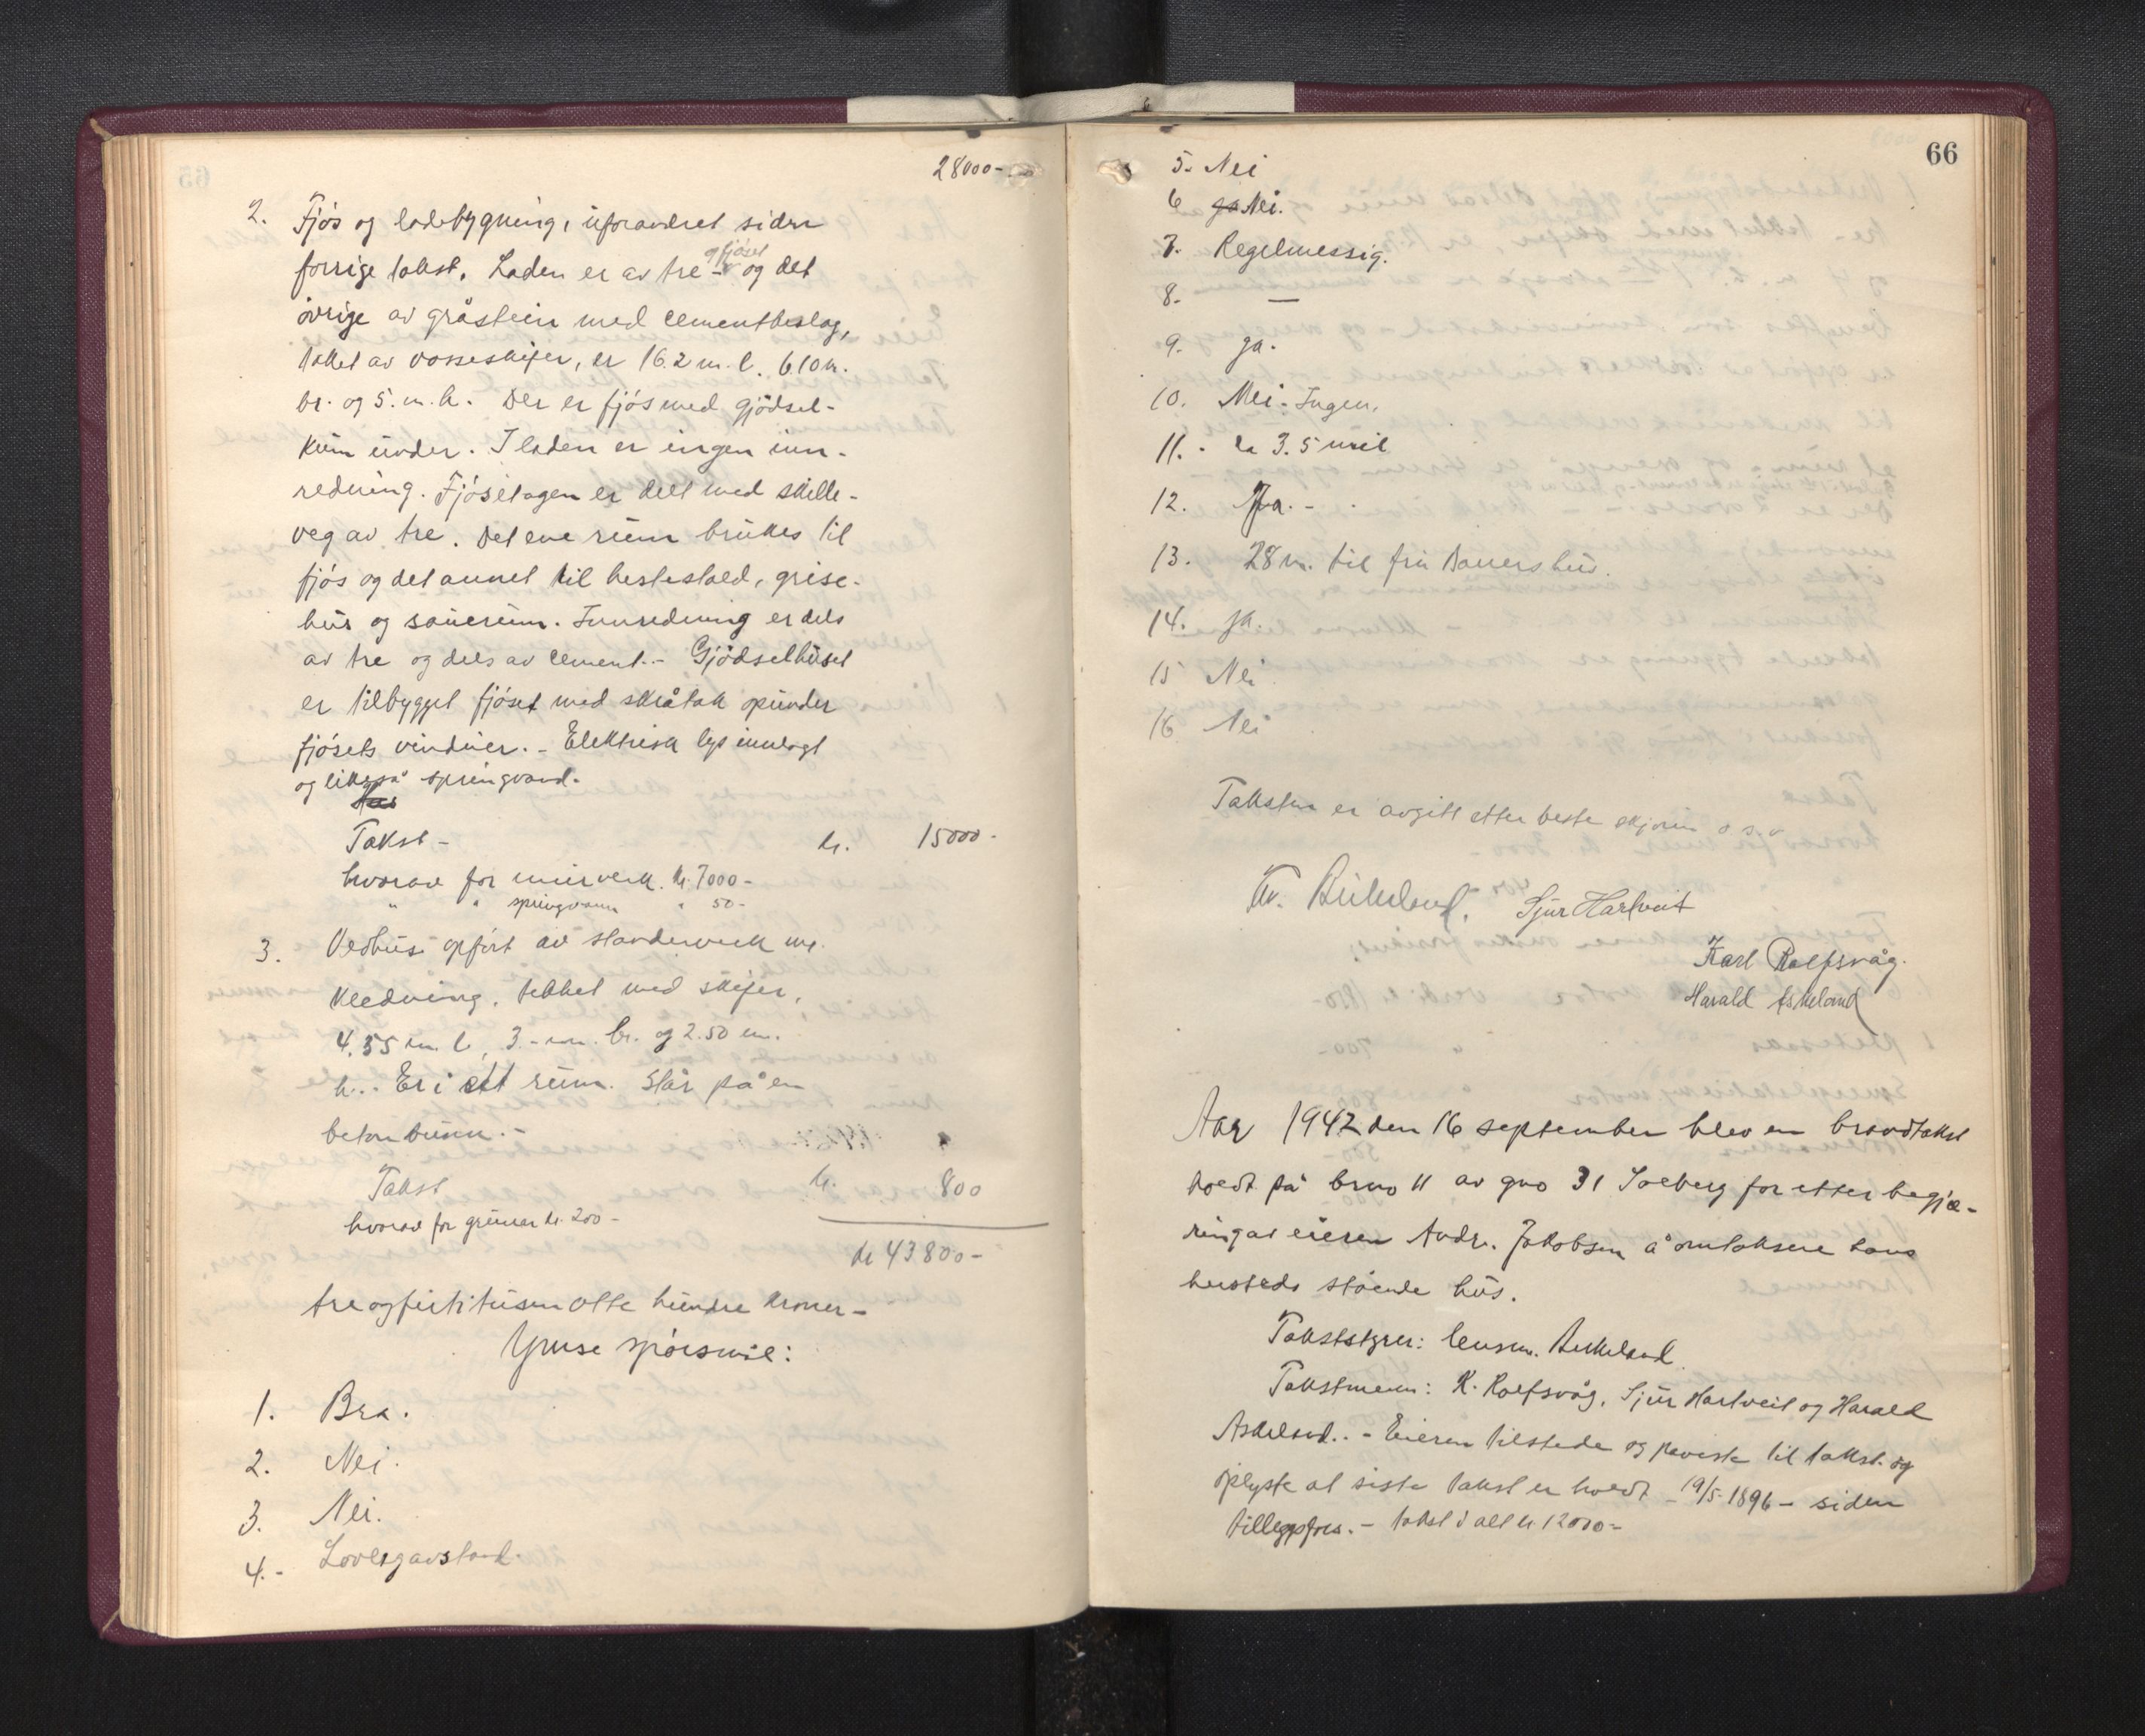 28000-
2. Fjøs og ladebygning, uforandret siden
forrige takst. Laden er av tre - og fjøset og det
øvrige av gråstein med cementbeslag,
tekket av vosseskifer, er 16.2 m. l. 6.10 m.
br. og 5. m. h. Der er fjøs med gjødsel-
kum under. I laden er ingen inn-
redning. Fjøsetagen er delt med skille-
veg av tre. Det ene rum brukes til
fjøs og det annet til hestestald, grise-
hus og sauerum. Innredning er dels
av tre og dels av cement. - Gjødselhuset
er tilbygget fjøset med skråtak opunder
fjøsets vinduer. - Elektrisk lys innlagt
og likeså springvand.
Takst - kr. 15000-
hvorav for murverk. kr. 7000-
" " springvann " 50-
3. Vedhus opført av standerverk m.
kledning, tekket med skifer,
4.55 m. l, 3.- m. br. og 2.50 m.
h... Er i ett rum. Står på en
betonbunn. -
Takst kr. 800
hvorav for grunnm kr. 200-
kr 43800-
treogfirtitusen otte hundre kroner -
Ymse spørsmål:
1. Bra.
2. Nei.
3. Nei.
4.- Lovligavstand.
66
5. Nei
6 ja Nei.
7. Regelmessig.
8. —
9. ja.
10. Nei - Ingen.
11. - ca 3.5 mil
12. Ja. -
13. 28 m. til fru Bauers hus.
14. ja.
15 Nei
16 Nei
Taksten er avgitt etter beste skjønn o s. v
Tr. Birkeland. Sjur Hartveit
Karl Rolfsvåg.
Harald Askeland
Aar 1942 den 16 september blev en brandtakst
holdt på brno 11 av gno 31 Solberg for etter begjæ-
ring av eieren Andr. Jakobsen å omtaksere hans
hersteds stående hus.
Takststyrer: lensm. Birkeland.
Takstmenn: K. Rolfsvåg, Sjur Hartveit og Harald
Askeland.. - Eieren tilstede og paviste til takst. og
oplyste at siste takst er holdt - 19/5-1896 - siden
tilleggsfors. - takst i alt kr. 12000-